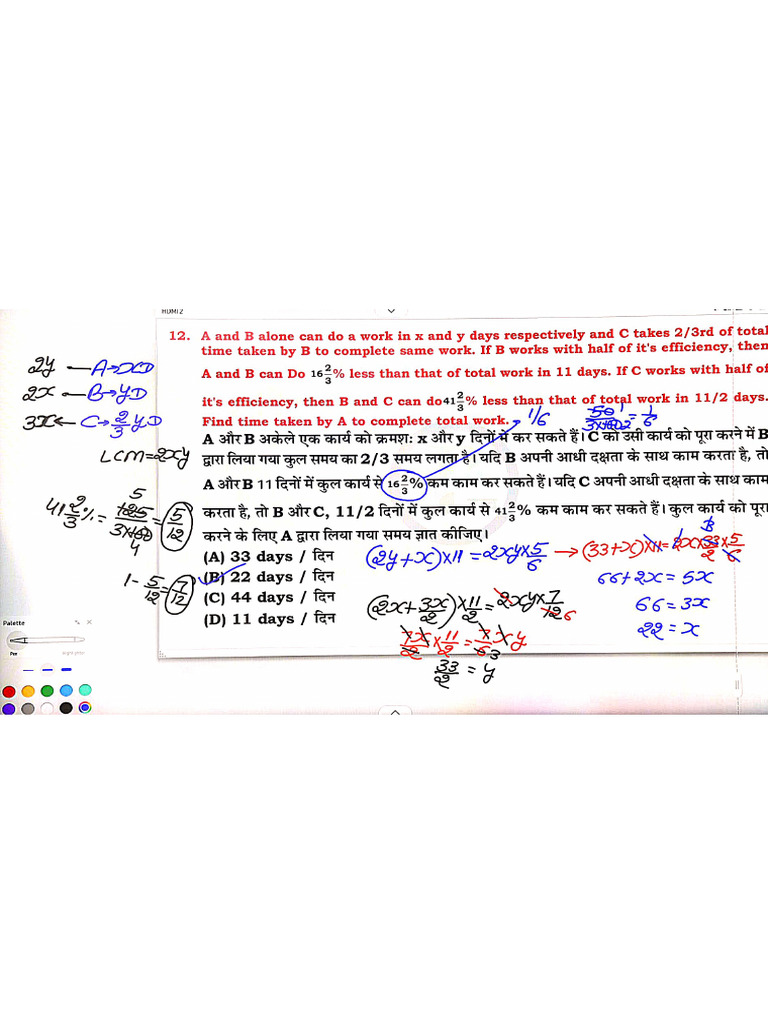 HDMI 2
12. A and B alone can do a work in x and y days respectively and C takes 2/3rd of total
time taken by B to complete same work. If B works with half of it's efficiency, then
A and B can Do 16 2/3% less than that of total work in 11 days. If C works with half of
it's efficiency, then B and C can do 41 2/3% less than that of total work in 11/2 days.
Find time taken by A to complete total work.
A और B अकेले एक कार्य को क्रमश: x और y दिनों में कर सकते हैं। C को उसी कार्य को पूरा करने में B
द्वारा लिया गया कुल समय का 2/3 समय लगता है। यदि B अपनी आधी दक्षता के साथ काम करता है, तो
A और B 11 दिनों में कुल कार्य से 16 2/3% कम काम कर सकते हैं। यदि C अपनी आधी दक्षता के साथ काम
करता है, तो B और C, 11/2 दिनों में कुल कार्य से 41 2/3% कम काम कर सकते हैं। कुल कार्य को पूरा
करने के लिए A द्वारा लिया गया समय ज्ञात कीजिए।
(A) 33 days / दिन
(B) 22 days / दिन
(C) 44 days / दिन
(D) 11 days / दिन
2y — A→xD
2x ← B→yD
3x ← C→ 2/3 yD
LCM=2xy
41 2/3 % = 125/3×100 = 5/12
5
4
1 - 5/12 = 7/12
1/6
50/3×100 = 1/6
1
2
(2y+x)×11 = 2xy×5/6 → (33+x)×11 = 2x×33/2×5/6
66+2x = 5x
66 = 3x
22 = x
(2x+3x/2)×11/2 = 2xy×7/12 6
7x/2×11/2 = 7/6 xy
3
33/2 = y
Palette
Pen
Highlighter